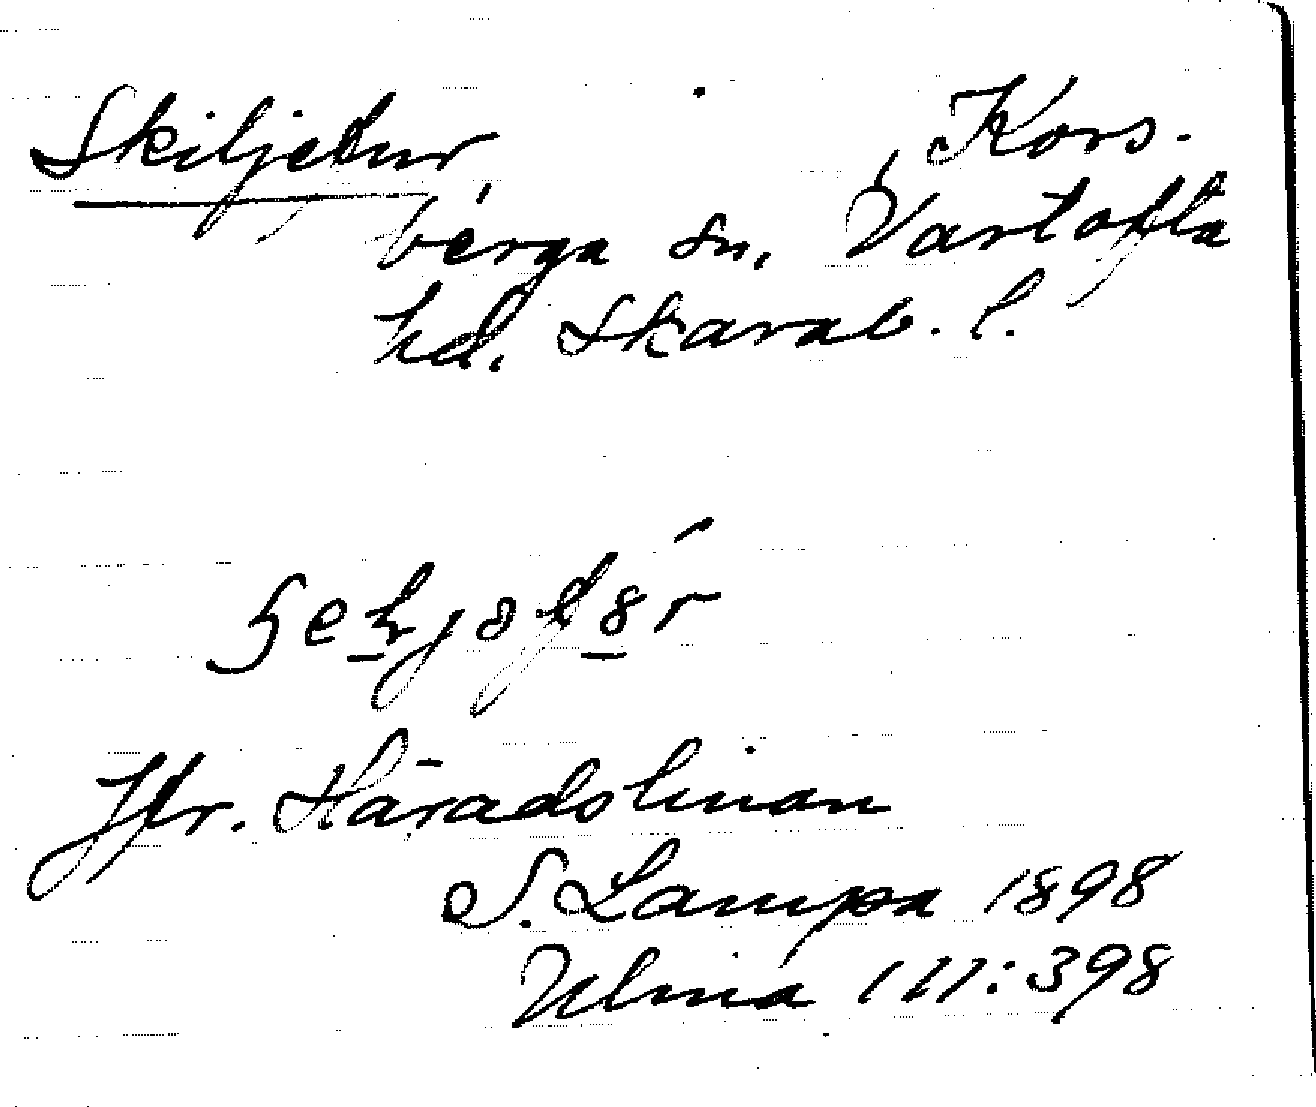 Skiljetur, Kors-
berga sn, Vartofta
hd. Skarab. l.
Jfr. Häradslinan
S. Lampa 1898
Ulma 111:398